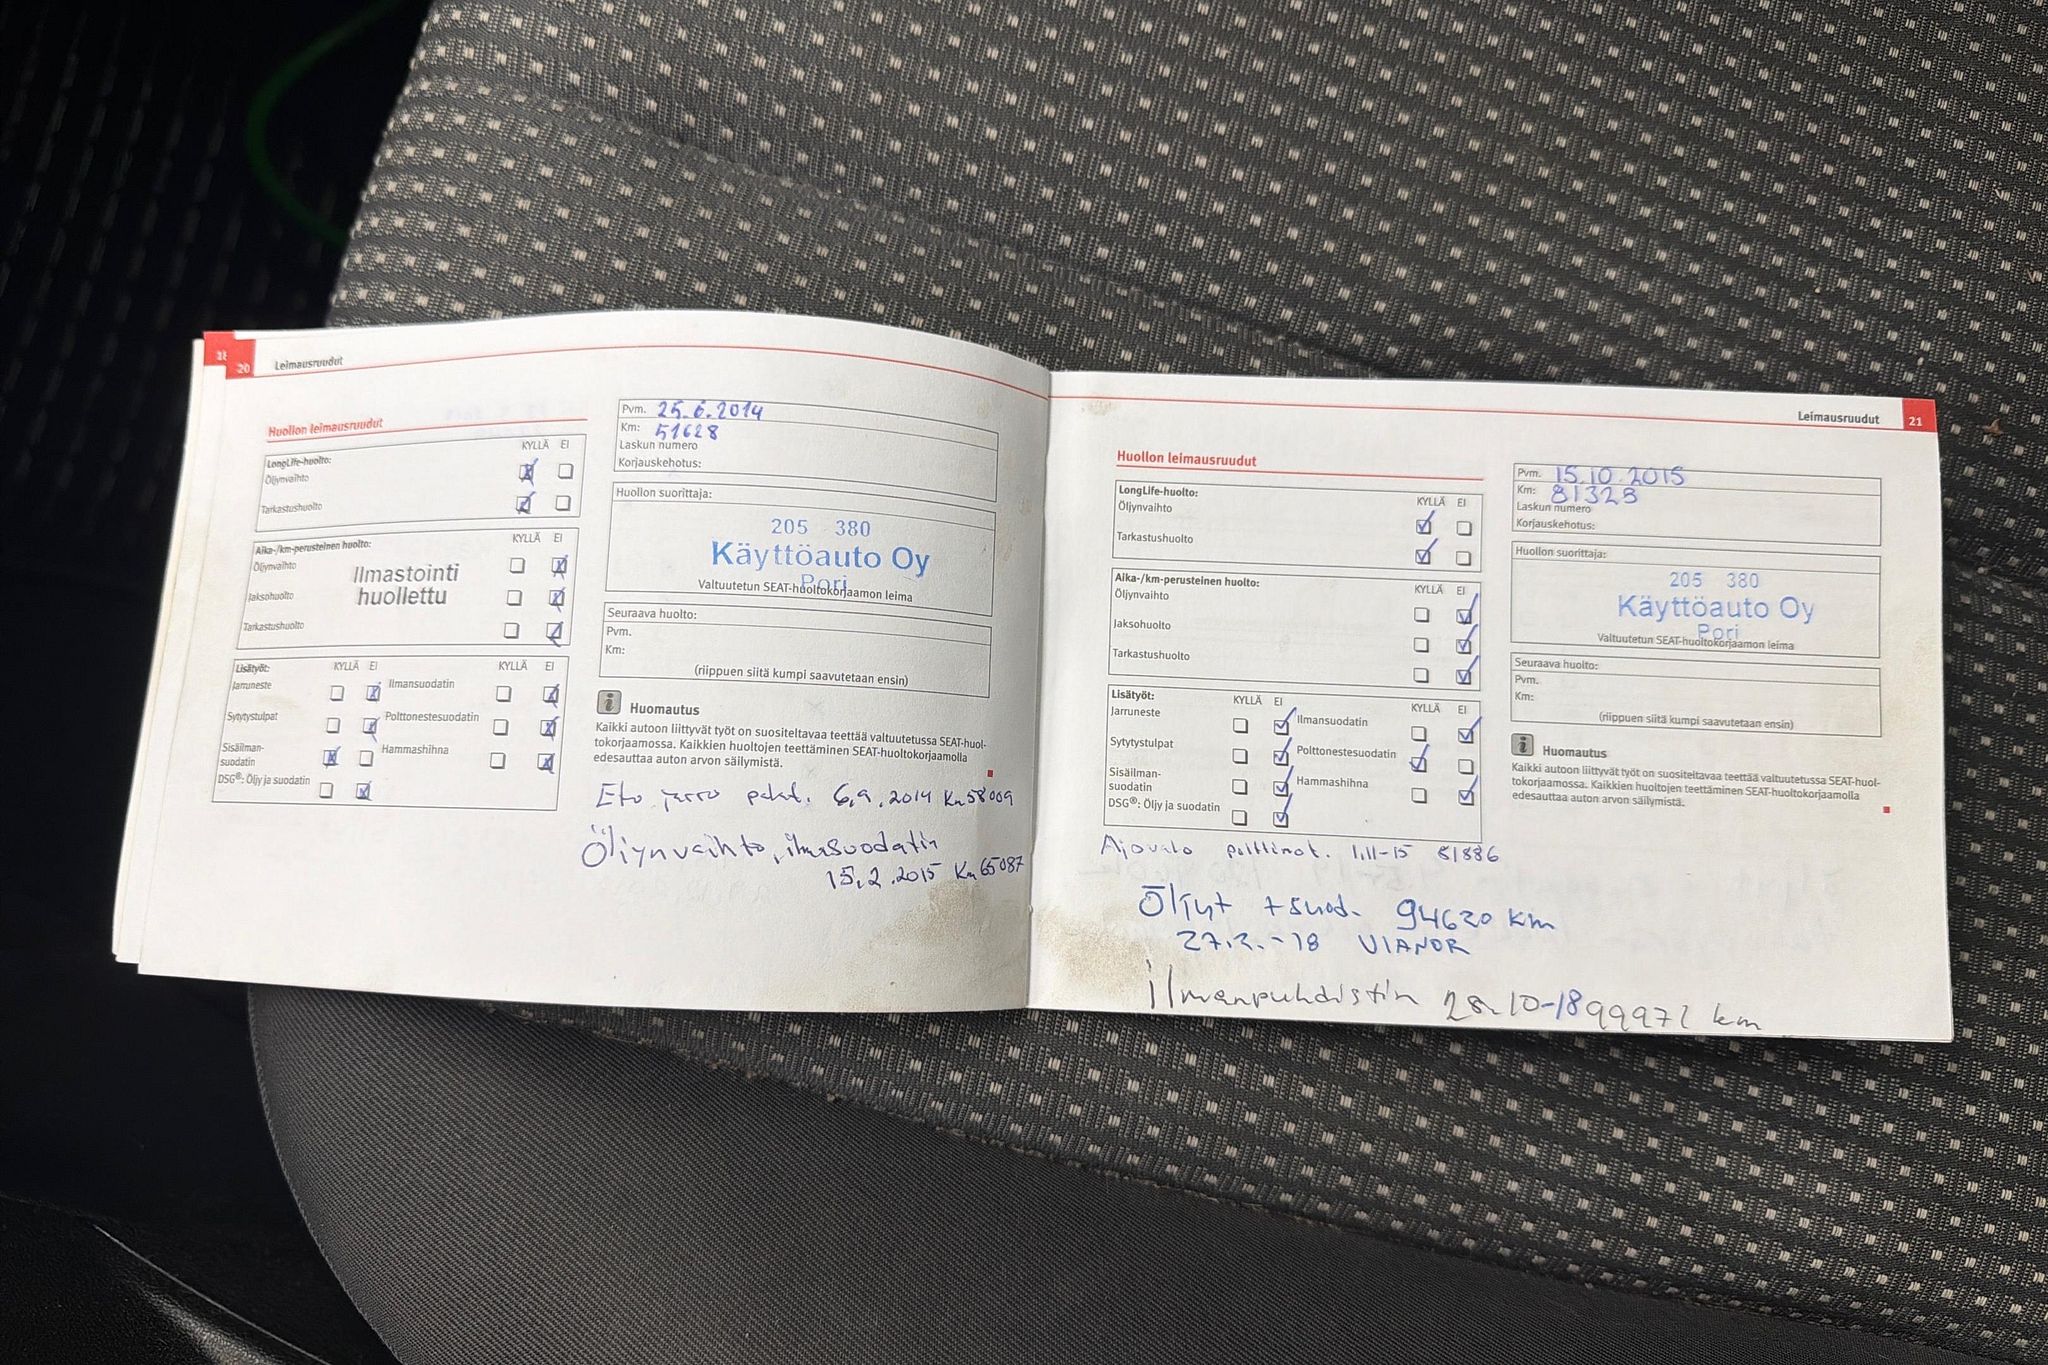 20 Leimausruudut
Huollon leimausruudut
KYLLÄ EI
LongLife-huolto:
Öljynvaihto
Tarkastushuolto
Aika-/km-perusteinen huolto:
KYLLÄ EI
Öljynvaihto
Jaksohuolto
Tarkastushuolto
Ilmastointi
huollettu
Lisätyöt: KYLLÄ EI KYLLÄ EI
Jarruneste Ilmansuodatin
Sytytystulpat Polttonestesuodatin
Sisäilman-
suodatin Hammashihna
DSG®: Öljy ja suodatin
Pvm. 25.6.2014
Km: 51628
Laskun numero
Korjauskehotus:
Huollon suorittaja:
205 380
Käyttöauto Oy
Pori
Valtuutetun SEAT-huoltokorjaamon leima
Seuraava huolto:
Pvm.
Km:
(riippuen siitä kumpi saavutetaan ensin)
Huomautus
Kaikki autoon liittyvät työt on suositeltavaa teettää valtuutetussa SEAT-huol-
tokorjaamossa. Kaikkien huoltojen teettäminen SEAT-huoltokorjaamolla
edesauttaa auton arvon säilymistä.
Etu jarru palat. 6.9.2014 Km 58009
Öljynvaihto, ilmasuodatin
15.2.2015 Km 65087
Leimausruudut 21
Huollon leimausruudut
LongLife-huolto: KYLLÄ EI
Öljynvaihto
Tarkastushuolto
Aika-/km-perusteinen huolto: KYLLÄ EI
Öljynvaihto
Jaksohuolto
Tarkastushuolto
Lisätyöt: KYLLÄ EI KYLLÄ EI
Jarruneste Ilmansuodatin
Sytytystulpat Polttonestesuodatin
Sisäilman-
suodatin Hammashihna
DSG®: Öljy ja suodatin
Pvm. 15.10.2015
Km: 81328
Laskun numero
Korjauskehotus:
Huollon suorittaja:
205 380
Käyttöauto Oy
Pori
Valtuutetun SEAT-huoltokorjaamon leima
Seuraava huolto:
Pvm.
Km:
(riippuen siitä kumpi saavutetaan ensin)
Huomautus
Kaikki autoon liittyvät työt on suositeltavaa teettää valtuutetussa SEAT-huol-
tokorjaamossa. Kaikkien huoltojen teettäminen SEAT-huoltokorjaamolla
edesauttaa auton arvon säilymistä.
Ajovalo polttimot. 1.11-15 81886
Öljyt + suod. 94620 km
27.2.-18 VIANOR
ilmanpuhdistin 28.10-18 99972 km